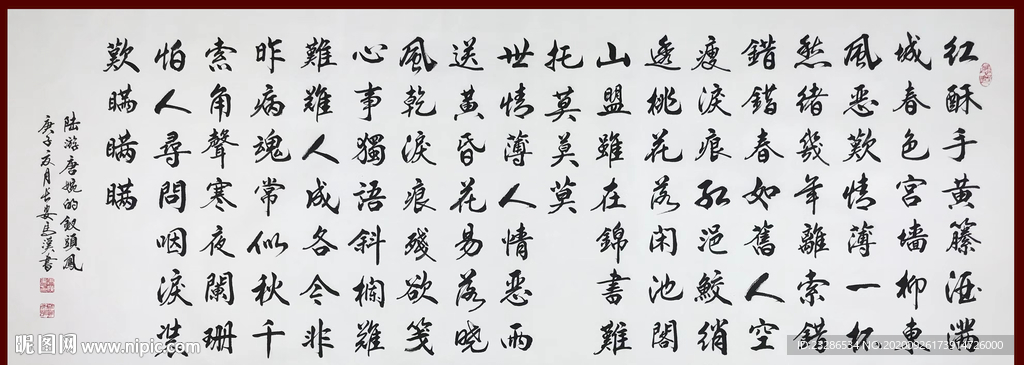 红酥手黄籐酒满
城春色宫墙柳東
風恶歎情薄一杯
愁绪幾年離索錯
錯錯春如舊人空
瘦淚痕红浥鮫绡
透桃花落闲池閣
山盟雖在錦書難
托莫莫莫
世情薄人情恶雨
送黄昏花易落晓
風乾淚痕殘欲笺
心事獨語斜欄難
難難人成各今非
昨病魂常似秋千
索角聲寒夜闌珊
怕人尋問咽淚装
歎瞒瞒瞒
陸游唐婉的釵頭鳳
庚子夏月长安馬漢書
昵图网 www.nipic.com
ID:23286534 NO:20200926173914726000